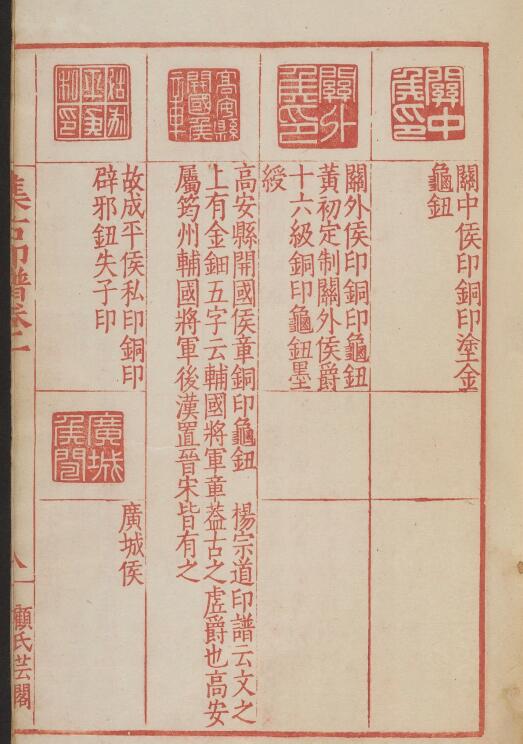 關中侯印
關中侯印銅印塗金
龜鈕
關外侯印
關外侯印銅印龜鈕
黃初定制關外侯爵
十六級銅印龜鈕墨
綬
高安縣開國侯章
高安縣開國侯章銅印龜鈕　楊宗道印譜云文之
上有金鈿五字云輔國將軍章葢古之虗爵也高安
屬筠州輔國將軍後漢置晉宋皆有之
故成平侯私印
故成平侯私印銅印
辟邪鈕失子印
廣城侯
集古印譜卷二
八
顧氏芸閣